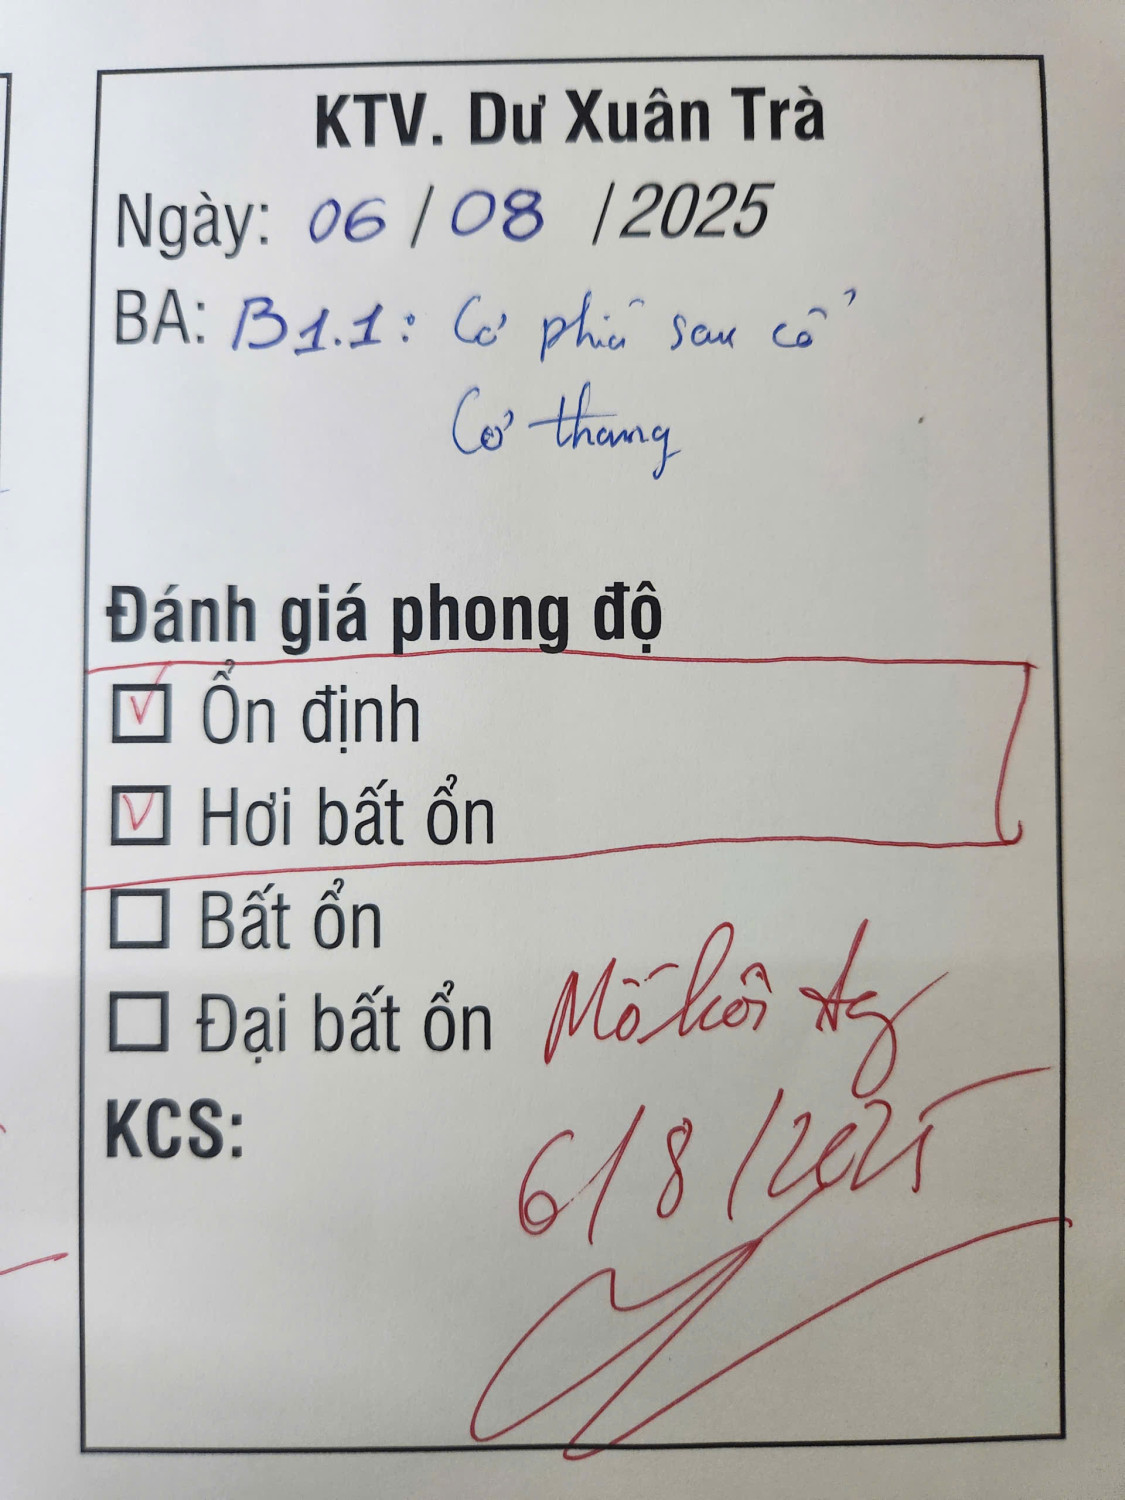 KTV. Dư Xuân Trà
Ngày: 06 / 08 / 2025
BA: B1.1: Cơ phía sau cổ
Cơ thang
Đánh giá phong độ
Ổn định
Hơi bất ổn
Bất ổn
Đại bất ổn
KCS:
6/8/2025